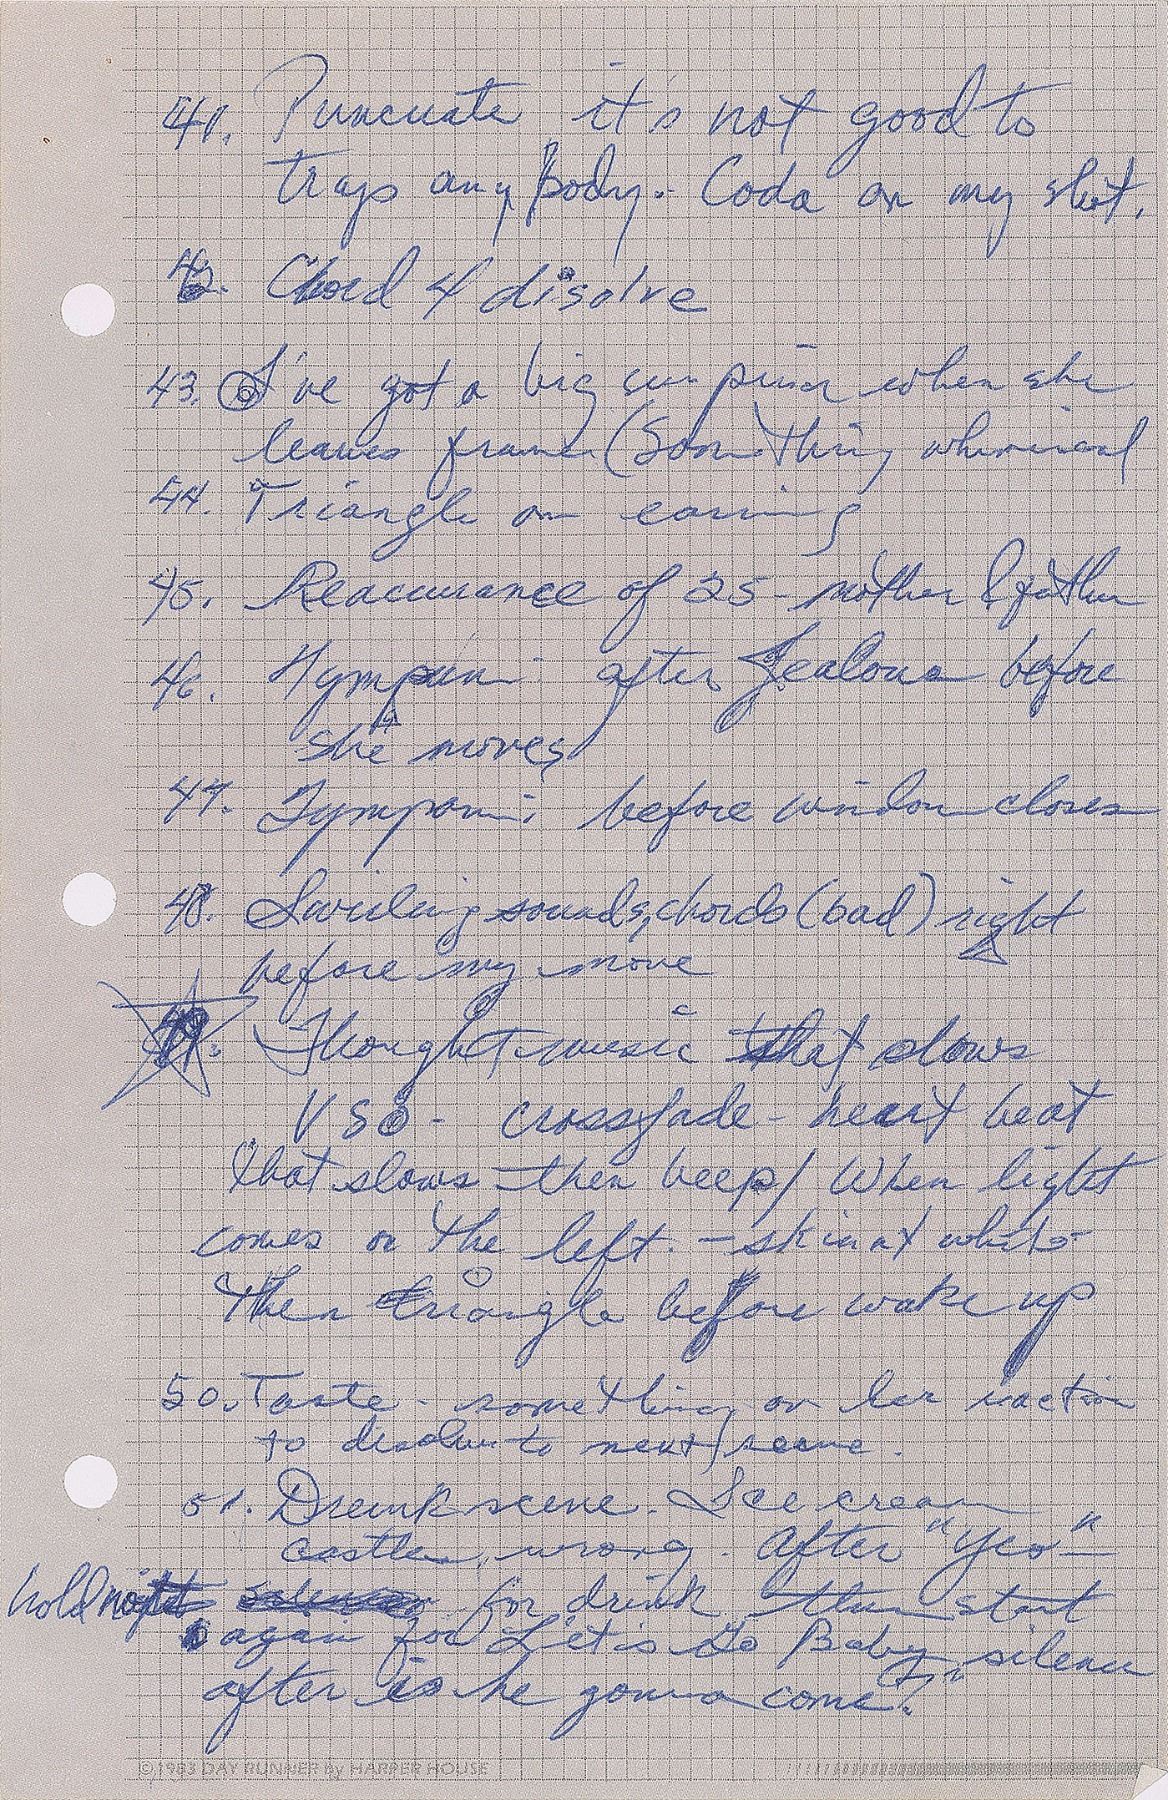 41. Puncuate it's not good to
trap any body. Coda on my shot.
42. Chord 4 disolve
43. I've got a big surprise when she
leaves frame (Something whimsical
44. Triangle on earring
45. Reaccurance of 25 - mother & father
46. Tympani after Jealous before
she moves
47. Tympani: before window closes
48. Swirling sounds, chords (bad) right
before my move
49. Thought music that slows
VSO - crossfade - heart beat
that slows then beep / When light
comes on the left. -
then triangle before wake up
50. Taste - something on her reaction
to disolve to next scene.
51. Drink scene. Ice cream
castles, wrong. After "Yes"
hold for drink then start
again for Let's Go Baby silence
after is he gonna come?"
©1983 DAY RUNNER by HARPER HOUSE